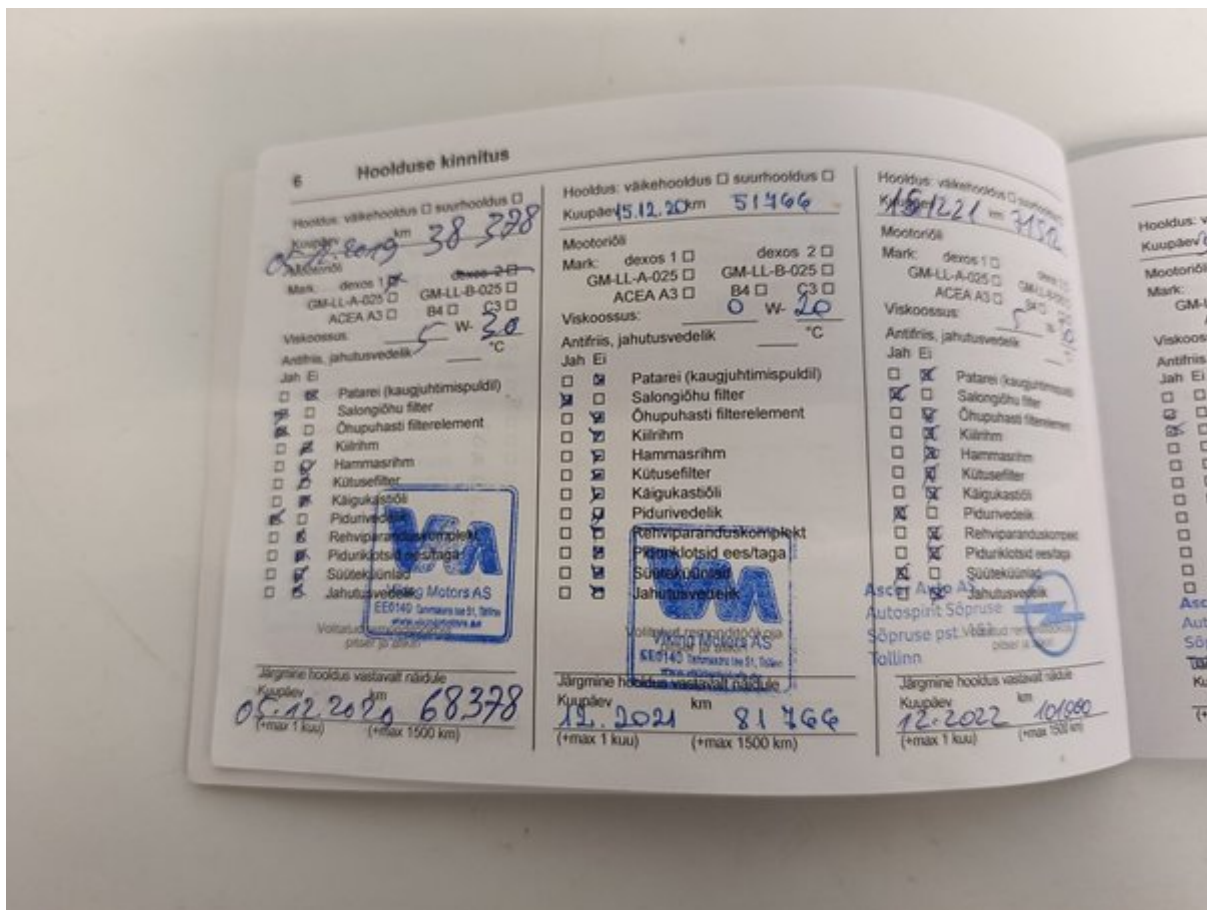 6 Hoolduse kinnitus
Hooldus: väikehooldus □ suurhooldus □
Kuupäev km
05.12.2019 38 378
Mootoriõli
Mark: dexos 1 ☒ dexos 2 □
GM-LL-A-025 □ GM-LL-B-025 □
ACEA A3 □ B4 □ C3 □
Viskoossus: 5 W- 30
Antifriis, jahutusvedelik °C
Jah Ei
□ ☒ Patarei (kaugjuhtimispuldil)
☒ □ Salongiõhu filter
☒ □ Õhupuhasti filterelement
□ ☒ Kiilrihm
□ ☒ Hammasrihm
□ ☒ Kütusefilter
□ ☒ Käigukastiõli
☒ □ Pidurivedelik
□ ☒ Rehviparanduskomplekt
□ ☒ Piduriklotsid ees/taga
□ ☒ Süüteküünlad
□ ☒ Jahutusvedelik
Viking Motors AS
EE0140 Tammsaare tee 51, Tallinn
www.vikingmotors.ee
Volitatud
pitser ja allkiri
Järgmine hooldus vastavalt näidule
Kuupäev km
05.12.2020 68378
(+max 1 kuu) (+max 1500 km)
Hooldus: väikehooldus □ suurhooldus □
Kuupäev 15.12.20 km 51766
Mootoriõli
Mark: dexos 1 □ dexos 2 □
GM-LL-A-025 □ GM-LL-B-025 □
ACEA A3 □ B4 □ C3 □
Viskoossus: 0 W- 20
Antifriis, jahutusvedelik °C
Jah Ei
□ ☒ Patarei (kaugjuhtimispuldil)
☒ □ Salongiõhu filter
□ ☒ Õhupuhasti filterelement
□ ☒ Kiilrihm
□ ☒ Hammasrihm
□ ☒ Kütusefilter
□ ☒ Käigukastiõli
□ ☒ Pidurivedelik
□ ☒ Rehviparanduskomplekt
□ ☒ Piduriklotsid ees/taga
□ ☒ Süüteküünlad
□ ☒ Jahutusvedelik
Volitatud remonditöökoja
Viking Motors AS
EE0140 Tammsaare tee 51, Tallinn
Järgmine hooldus vastavalt näidule
Kuupäev km
12.2021 81766
(+max 1 kuu) (+max 1500 km)
Hooldus: väikehooldus □ suurhooldus □
Kuupäev km
Mootoriõli
Mark: dexos 1 □
GM-LL-A-025 □
ACEA A3 □ B4 □
Viskoossus: 5 W-
Antifriis, jahutusvedelik
Jah Ei
□ ☒ Patarei (kaugjuhtimispuldil)
☒ □ Salongiõhu filter
□ ☒ Õhupuhasti filterelement
□ ☒ Kiilrihm
□ ☒ Hammasrihm
□ ☒ Kütusefilter
□ ☒ Käigukastiõli
☒ □ Pidurivedelik
□ ☒ Rehviparanduskomplekt
□ ☒ Piduriklotsid ees/taga
☒ □ Süüteküünlad
□ ☒ Jahutusvedelik
Auto AS
Autospirit Sõpruse
Sõpruse pst.
Tallinn
Järgmine hooldus vastavalt näidule
Kuupäev km
12.2022
(+max 1 kuu) (+max 1500 km)
Hooldus:
Kuupäev
Mootoriõli
Mark:
Antifriis
Jah Ei